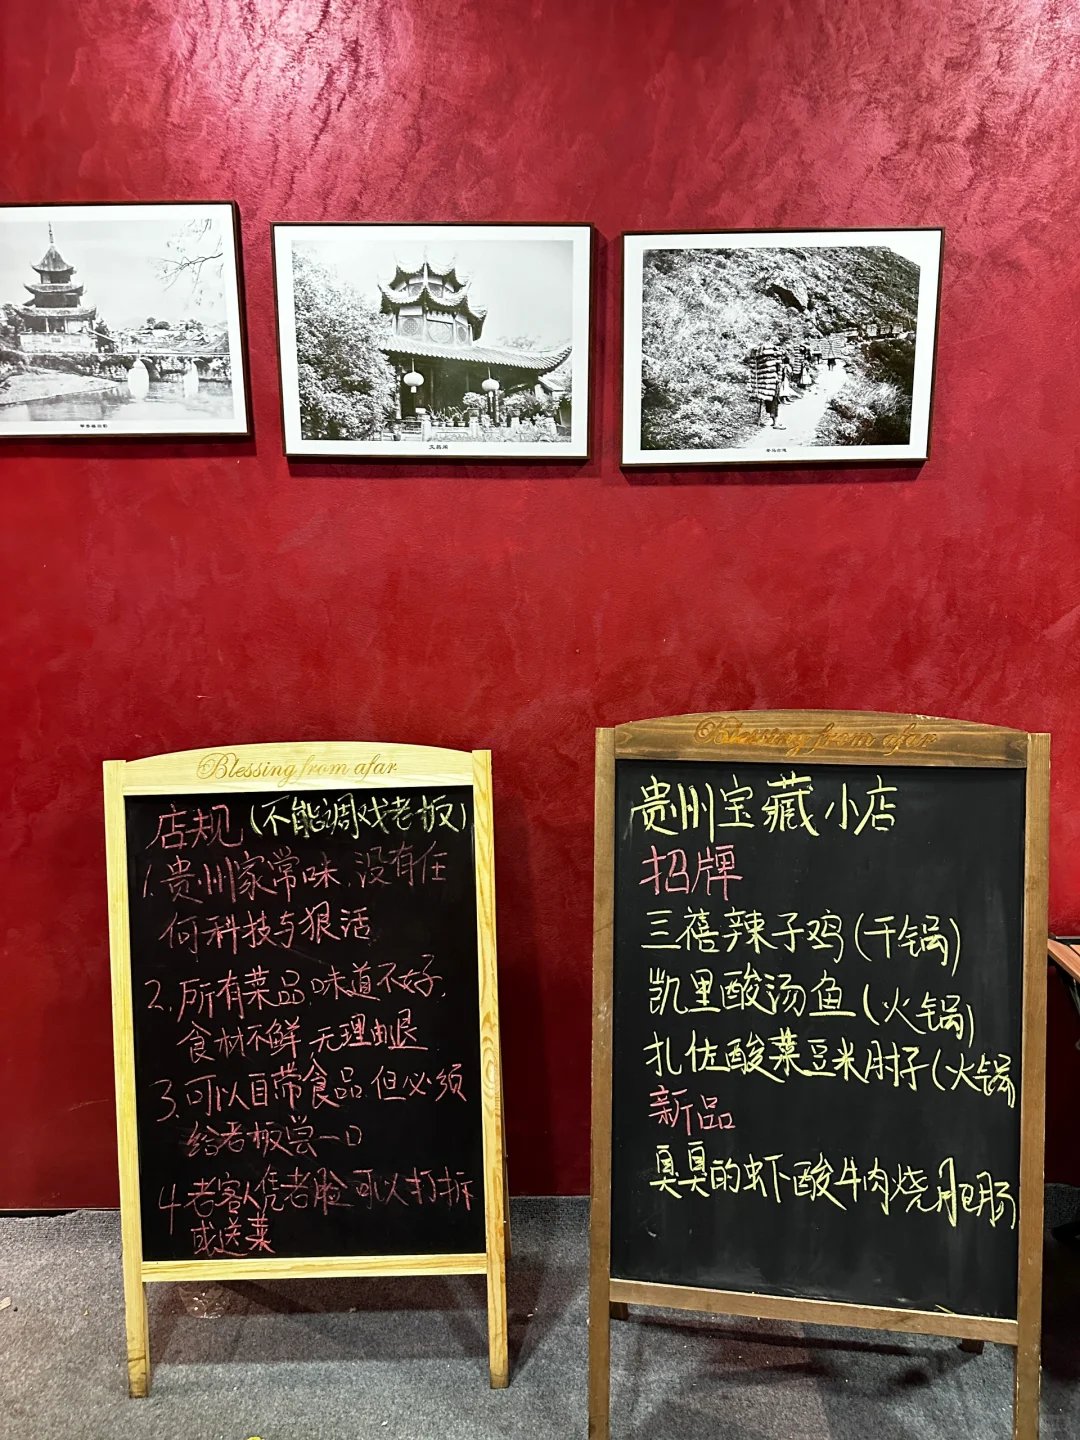 甲秀楼旧影
文昌阁
Blessing from afar
店规(不能调戏老板)
1.贵州家常味.没有任
何科技与狠活
2.所有菜品.味道不好.
食材不鲜 无理由退
3.可以自带食品.但必须
给老板尝一口
4.老客人凭老脸可以打折
或送菜
Blessing from afar
贵州宝藏小店
招牌
三禧辣子鸡(干锅)
凯里酸汤鱼(火锅)
扎佐酸菜豆米肘子(火锅
新品
臭臭的虾酸牛肉烧肥肠